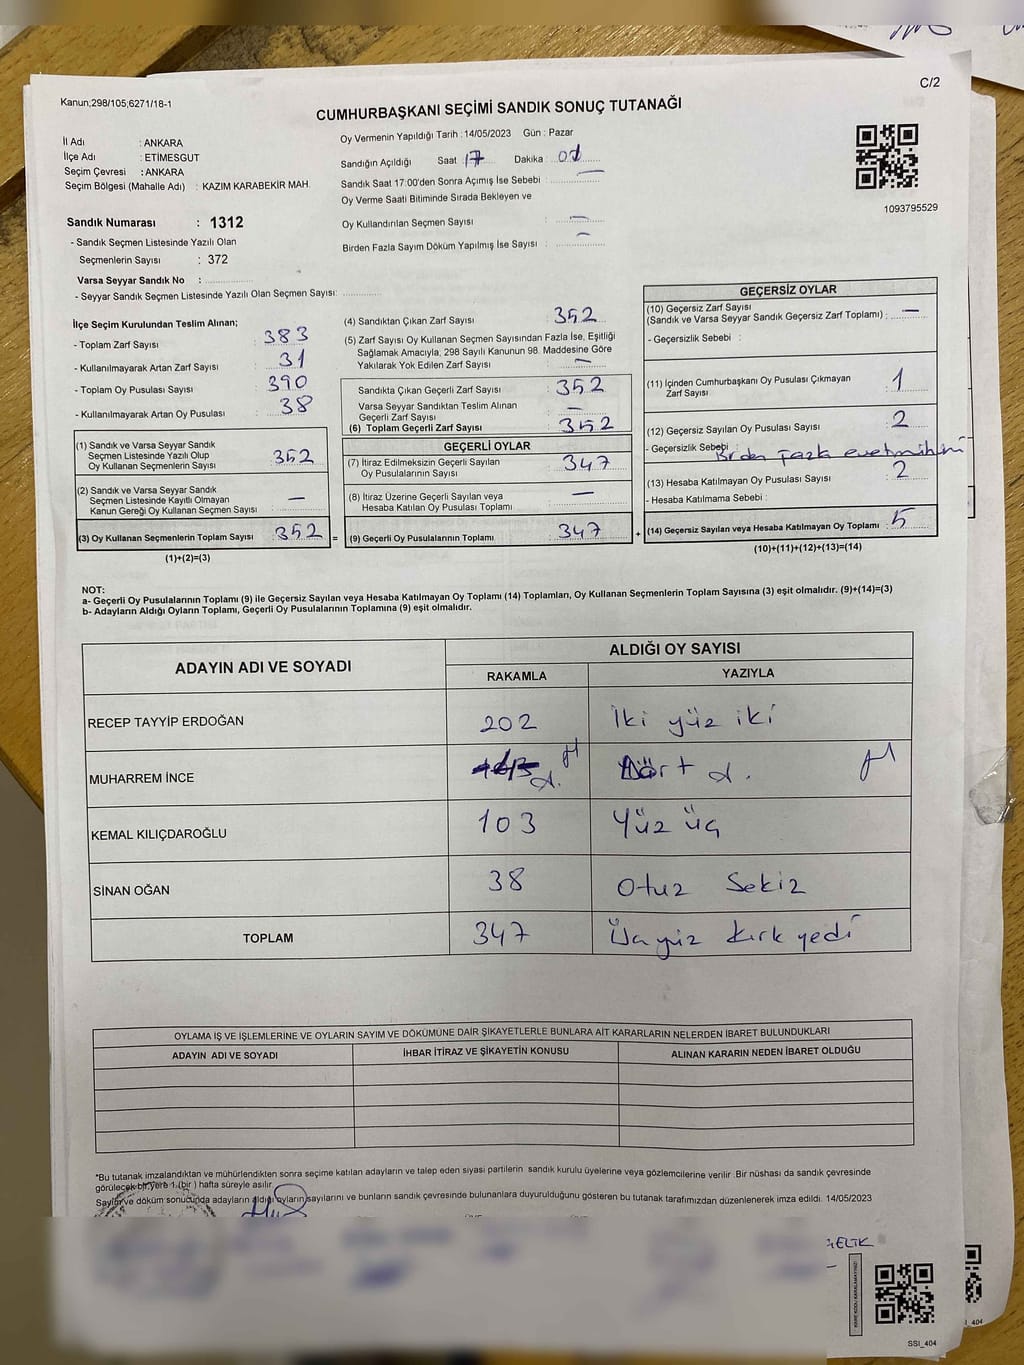 C/2
Kanun;298/105;6271/18-1
CUMHURBAŞKANI SEÇİMİ SANDIK SONUÇ TUTANAĞI
İl Adı : ANKARA
İlçe Adı : ETİMESGUT
Seçim Çevresi : ANKARA
Seçim Bölgesi (Mahalle Adı) : KAZIM KARABEKİR MAH.
Oy Vermenin Yapıldığı Tarih :14/05/2023 Gün : Pazar
Sandığın Açıldığı Saat 17 Dakika
Sandık Saat 17:00'den Sonra Açımış İse Sebebi : —
Oy Verme Saati Bitiminde Sırada Bekleyen ve
Oy Kullandırılan Seçmen Sayısı : —
Birden Fazla Sayım Döküm Yapılmış İse Sayısı : —
1093795529
Sandık Numarası : 1312
- Sandık Seçmen Listesinde Yazılı Olan
Seçmenlerin Sayısı : 372
Varsa Seyyar Sandık No :
- Seyyar Sandık Seçmen Listesinde Yazılı Olan Seçmen Sayısı:
İlçe Seçim Kurulundan Teslim Alınan;
- Toplam Zarf Sayısı : 383
- Kullanılmayarak Artan Zarf Sayısı : 31
- Toplam Oy Pusulası Sayısı : 390
- Kullanılmayarak Artan Oy Pusulası : 38
(1) Sandık ve Varsa Seyyar Sandık
Seçmen Listesinde Yazılı Olup
Oy Kullanan Seçmenlerin Sayısı : 352
(2) Sandık ve Varsa Seyyar Sandık
Seçmen Listesinde Kayıtlı Olmayan
Kanun Gereği Oy Kullanan Seçmen Sayısı : —
(3) Oy Kullanan Seçmenlerin Toplam Sayısı : 352
(1)+(2)=(3)
(4) Sandıktan Çıkan Zarf Sayısı : 352
(5) Zarf Sayısı Oy Kullanan Seçmen Sayısından Fazla İse, Eşitliği
Sağlamak Amacıyla, 298 Sayılı Kanunun 98. Maddesine Göre
Yakılarak Yok Edilen Zarf Sayısı : —
Sandıkta Çıkan Geçerli Zarf Sayısı : 352
Varsa Seyyar Sandıktan Teslim Alınan
Geçerli Zarf Sayısı : —
(6) Toplam Geçerli Zarf Sayısı : 352
GEÇERLİ OYLAR
(7) İtiraz Edilmeksizin Geçerli Sayılan
Oy Pusulalarının Sayısı : 347
(8) İtiraz Üzerine Geçerli Sayılan veya
Hesaba Katılan Oy Pusulası Toplamı : —
(9) Geçerli Oy Pusulalarının Toplamı : 347
GEÇERSİZ OYLAR
(10) Geçersiz Zarf Sayısı
(Sandık ve Varsa Seyyar Sandık Geçersiz Zarf Toplamı) : —
- Geçersizlik Sebebi :
(11) İçinden Cumhurbaşkanı Oy Pusulası Çıkmayan
Zarf Sayısı : 1
(12) Geçersiz Sayılan Oy Pusulası Sayısı : 2
- Geçersizlik Sebebi : Birden Fazla evet mührü
(13) Hesaba Katılmayan Oy Pusulası Sayısı : 2
- Hesaba Katılmama Sebebi :
(14) Geçersiz Sayılan veya Hesaba Katılmayan Oy Toplamı : 5
(10)+(11)+(12)+(13)=(14)
NOT:
a- Geçerli Oy Pusulalarının Toplamı (9) ile Geçersiz Sayılan veya Hesaba Katılmayan Oy Toplamı (14) Toplamları, Oy Kullanan Seçmenlerin Toplam Sayısına (3) eşit olmalıdır. (9)+(14)=(3)
b- Adayların Aldığı Oyların Toplamı, Geçerli Oy Pusulalarının Toplamına (9) eşit olmalıdır.
ADAYIN ADI VE SOYADI ALDIĞI OY SAYISI
RAKAMLA YAZIYLA
RECEP TAYYİP ERDOĞAN 202 İki yüz iki
MUHARREM İNCE Dört
KEMAL KILIÇDAROĞLU 103 Yüz üç
SİNAN OĞAN 38 Otuz Sekiz
TOPLAM 347 Üçyüz kırk yedi
OYLAMA İŞ VE İŞLEMLERİNE VE OYLARIN SAYIM VE DÖKÜMÜNE DAİR ŞİKAYETLERLE BUNLARA AİT KARARLARIN NELERDEN İBARET BULUNDUKLARI
ADAYIN ADI VE SOYADI İHBAR İTİRAZ VE ŞİKAYETİN KONUSU ALINAN KARARIN NEDEN İBARET OLDUĞU
*Bu tutanak imzalandıktan ve mühürlendikten sonra seçime katılan adayların ve talep eden siyasi partilerin sandık kurulu üyelerine veya gözlemcilerine verilir .Bir nüshası da sandık çevresinde
görülecek bir yere 1 (bir ) hafta süreyle asılır.
Sayım ve döküm sonucunda adayların aldığı oyların sayılarını ve bunların sandık çevresinde bulunanlara duyurulduğunu gösteren bu tutanak tarafımızdan düzenlenerek imza edildi. 14/05/2023
SSI_404